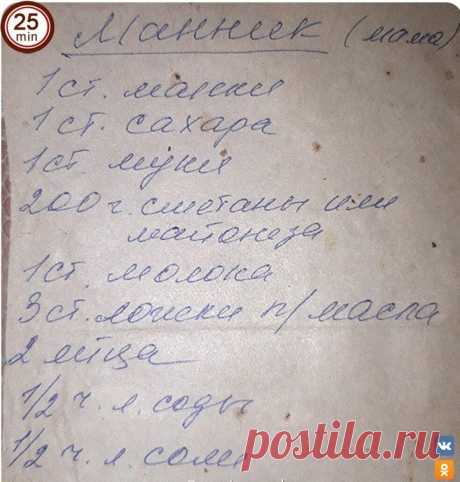 25
min
Манник (мама)
1 ст. манки
1 ст. сахара
1 ст. муки
200 г. сметаны или
майонеза
1 ст. молока
3 ст. ложки п/масла
2 яйца
1/2 ч. л. соды
1/2 ч. л. соли
postila.ru